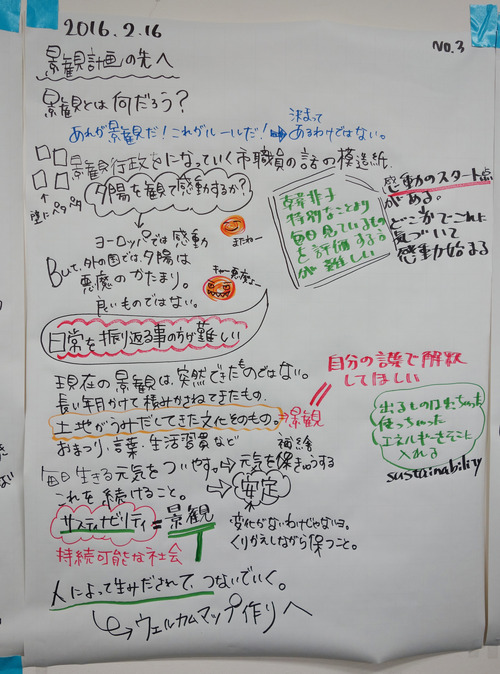 2016.2.16
No.3
景観計画の先へ
景観とは何だろう？
あれが景観だ！これがルールだ！⇒決まってあるわけではない。
景観行政をになっていく市職員の話の模造紙
↑壁にペタペタ
夕陽を観て感動するか？
感動のスタート点
がある。
どこかでこれに
気づいて
感動始まる
韓非子
特別なことより
毎日見ているもの
を評価する方
が難しい
ヨーロッパでは感動
またねー
But、外の国では、夕陽は
悪魔のかたまり。
良いものではない。
日常を振り返る事の方が難しい
現在の景観は、突然できたものではない。
長い年月かけて積みかさねてきたもの。
土地がうみだしてきた文化そのもの。⇒景観
自分の譲で解釈
してほしい
おまつり、言葉・生活習慣など
毎日生きる元気をついやす。⇒元気を保きゅうする
補給
これを続けること。⇒安定
出るものは出ちゃった
使っちゃった
エネルギーをそこに
入れる
sustainability
サスティナビリティ＝景観
持続可能な社会
変化がないわけじゃないヨ。
くりかえしながら保つこと。
人によって生みだされて、つないでいく。
ウェルカムマップ作りへ